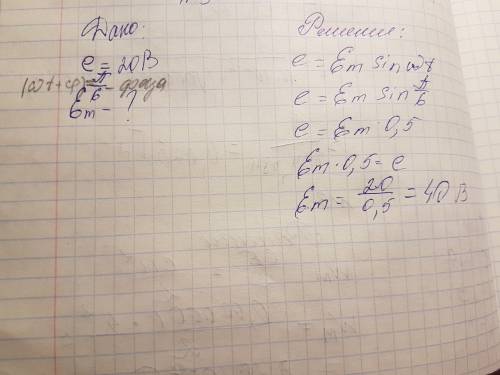 Дано:
e = 20В
(ωt+φ) = π/6 - фаза
Em - ?
Решение:
e = Em sin ωt
e = Em sin π/6
e = Em · 0,5
Em · 0,5 = e
Em = 20/0,5 = 40 В